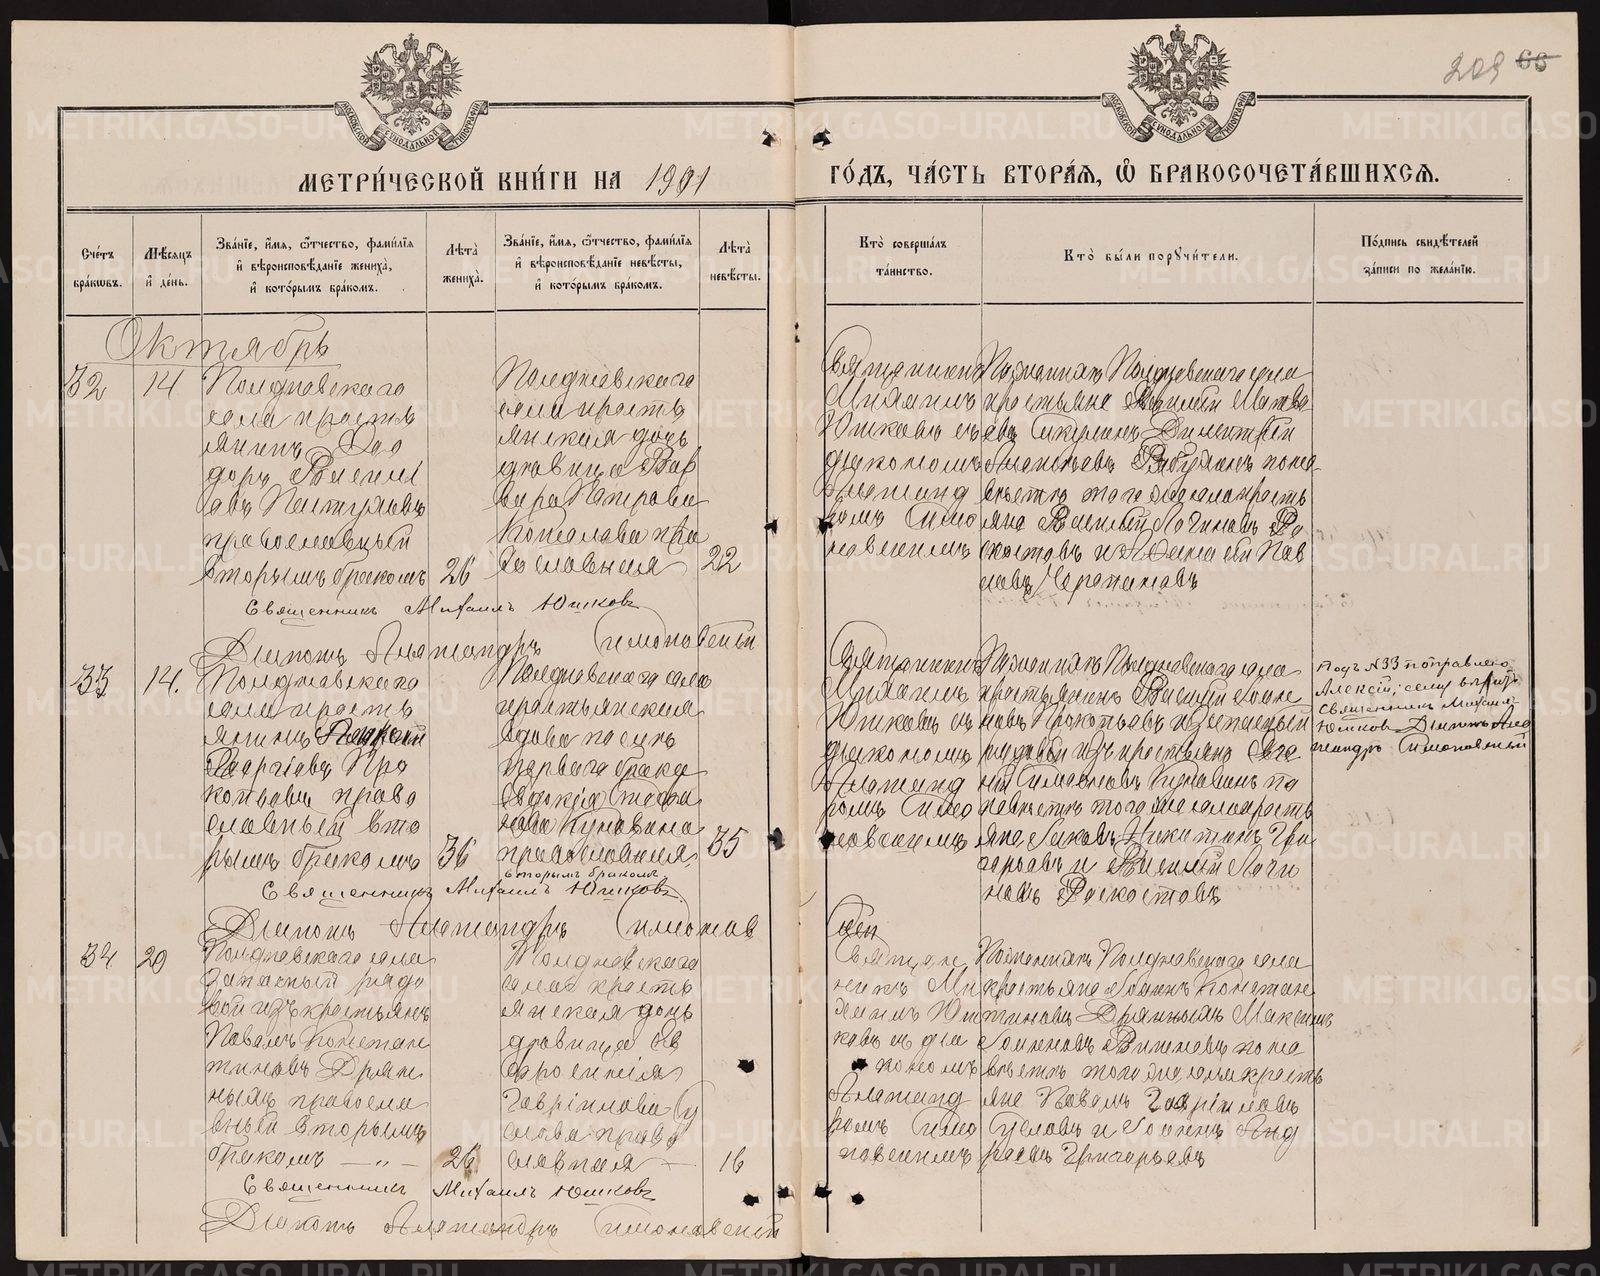 209 65
МЕТРИ́ЧЕСКОЙ КНИ́ГИ НА 1901 ГО́ДЪ, ЧА́СТЬ ВТОРА́Я, Ѡ҆ БРАКОСОЧЕТА́ВШИХСЯ.
Сче́тъ бра́ковъ.
Мѣ́сяцъ и҆ де́нь.
Зва́нїе, и҆́мя, ѻ҆́тчество, фами́лїя
и҆ вѣроисповѣ́данїе жениха̀,
и҆ кото́рымъ бра́комъ.
Лѣта̀ жениха̀.
Зва́нїе, и҆́мя, ѻ҆́тчество, фами́лїя
и҆ вѣроисповѣ́данїе невѣ́сты,
и҆ кото́рымъ бра́комъ.
Лѣта̀ невѣ́сты.
Кто̀ соверша́лъ
та́инство.
Кто̀ бы́ли поручи́тели.
По́дпись свидѣ́телей
за́писи по жела́нїю.
Октябрь
32
14
Полдневскаго
села кресть
янинъ Ѳео
доръ Василі
евъ Пастуховъ
православный
вторымъ бракомъ
26
Полдневскаго
села кресть
янская дочь
дѣвица Вар
вара Петрова
православная
22
Священникъ
Михаилъ
Юшковъ съ
діакономъ
Александ
ромъ Симо
новскимъ
Поженихѣ Полдневскаго села
крестьяне Василій Матвѣ
евъ Шкулинъ Димитрій
по не
вѣстѣ того же села кресть
яне Василій Логиновъ Ро
скостовъ и Алексѣй Пав
ловъ Черепановъ
Священникъ Михаилъ Юшковъ
Діаконъ Александръ Симоновскій
33
14.
Полдневскаго
села кресть
янинъ Алексѣй
Георгіевъ Про
копьевъ право
славный вто
рымъ бракомъ
36
Полдневскаго села
крестьянская
вдова послѣ
перваго брака
Евдокія Стефа
нова Куновина
православная,
вторымъ бракомъ
35
Священникъ
Михаилъ
Юшковъ съ
діакономъ
Александ
ромъ Симо
новскимъ
Поженихѣ Полдневскаго села
крестьянинъ Василій Іоан
новъ Прокопьевъ и запасный
рядовой изъ крестьянъ Евге
ній Симеоновъ Куновинъ по
невѣстѣ того же села кресть
яне Іаковъ Никитинъ Гри
горьевъ и Василій Логи
новъ Роскостовъ
Подъ №33 поправлено
Алексѣй; сему вѣрить
священникъ Михаилъ
Юшков Діаконъ Алек
сандръ Симоновскій
Священникъ Михаилъ Юшковъ.
Діаконъ Александръ Симонов
34
29
Полдневскаго села
запасный рядо
вой изъ крестьянъ
Павелъ Констан
тиновъ Дрян
ныхъ правосла
вный вторымъ
бракомъ — „ —
26
Полдневскаго
села кресть
янская дочь
дѣвица Ев
фросинія
Гавріилова Су
слова право
славная —
16
Свящ
Священ
никъ Ми
хаилъ Юш
ковъ съ діа
кономъ
Александ
ромъ Симо
новскимъ
Поженихѣ Полдневскаго села
крестьяне Іоаннъ Констан
тиновъ Дрянныхъ Максимъ
Іоанновъ по не
вѣстѣ того же села кресть
яне Павелъ Гавріиловъ
Сусловъ и Іоаннъ Анд
реевъ Григорьевъ
Священникъ Михаилъ Юшковъ
Діаконъ Александръ Симоновскій
METRIKI.GASO-URAL.RU